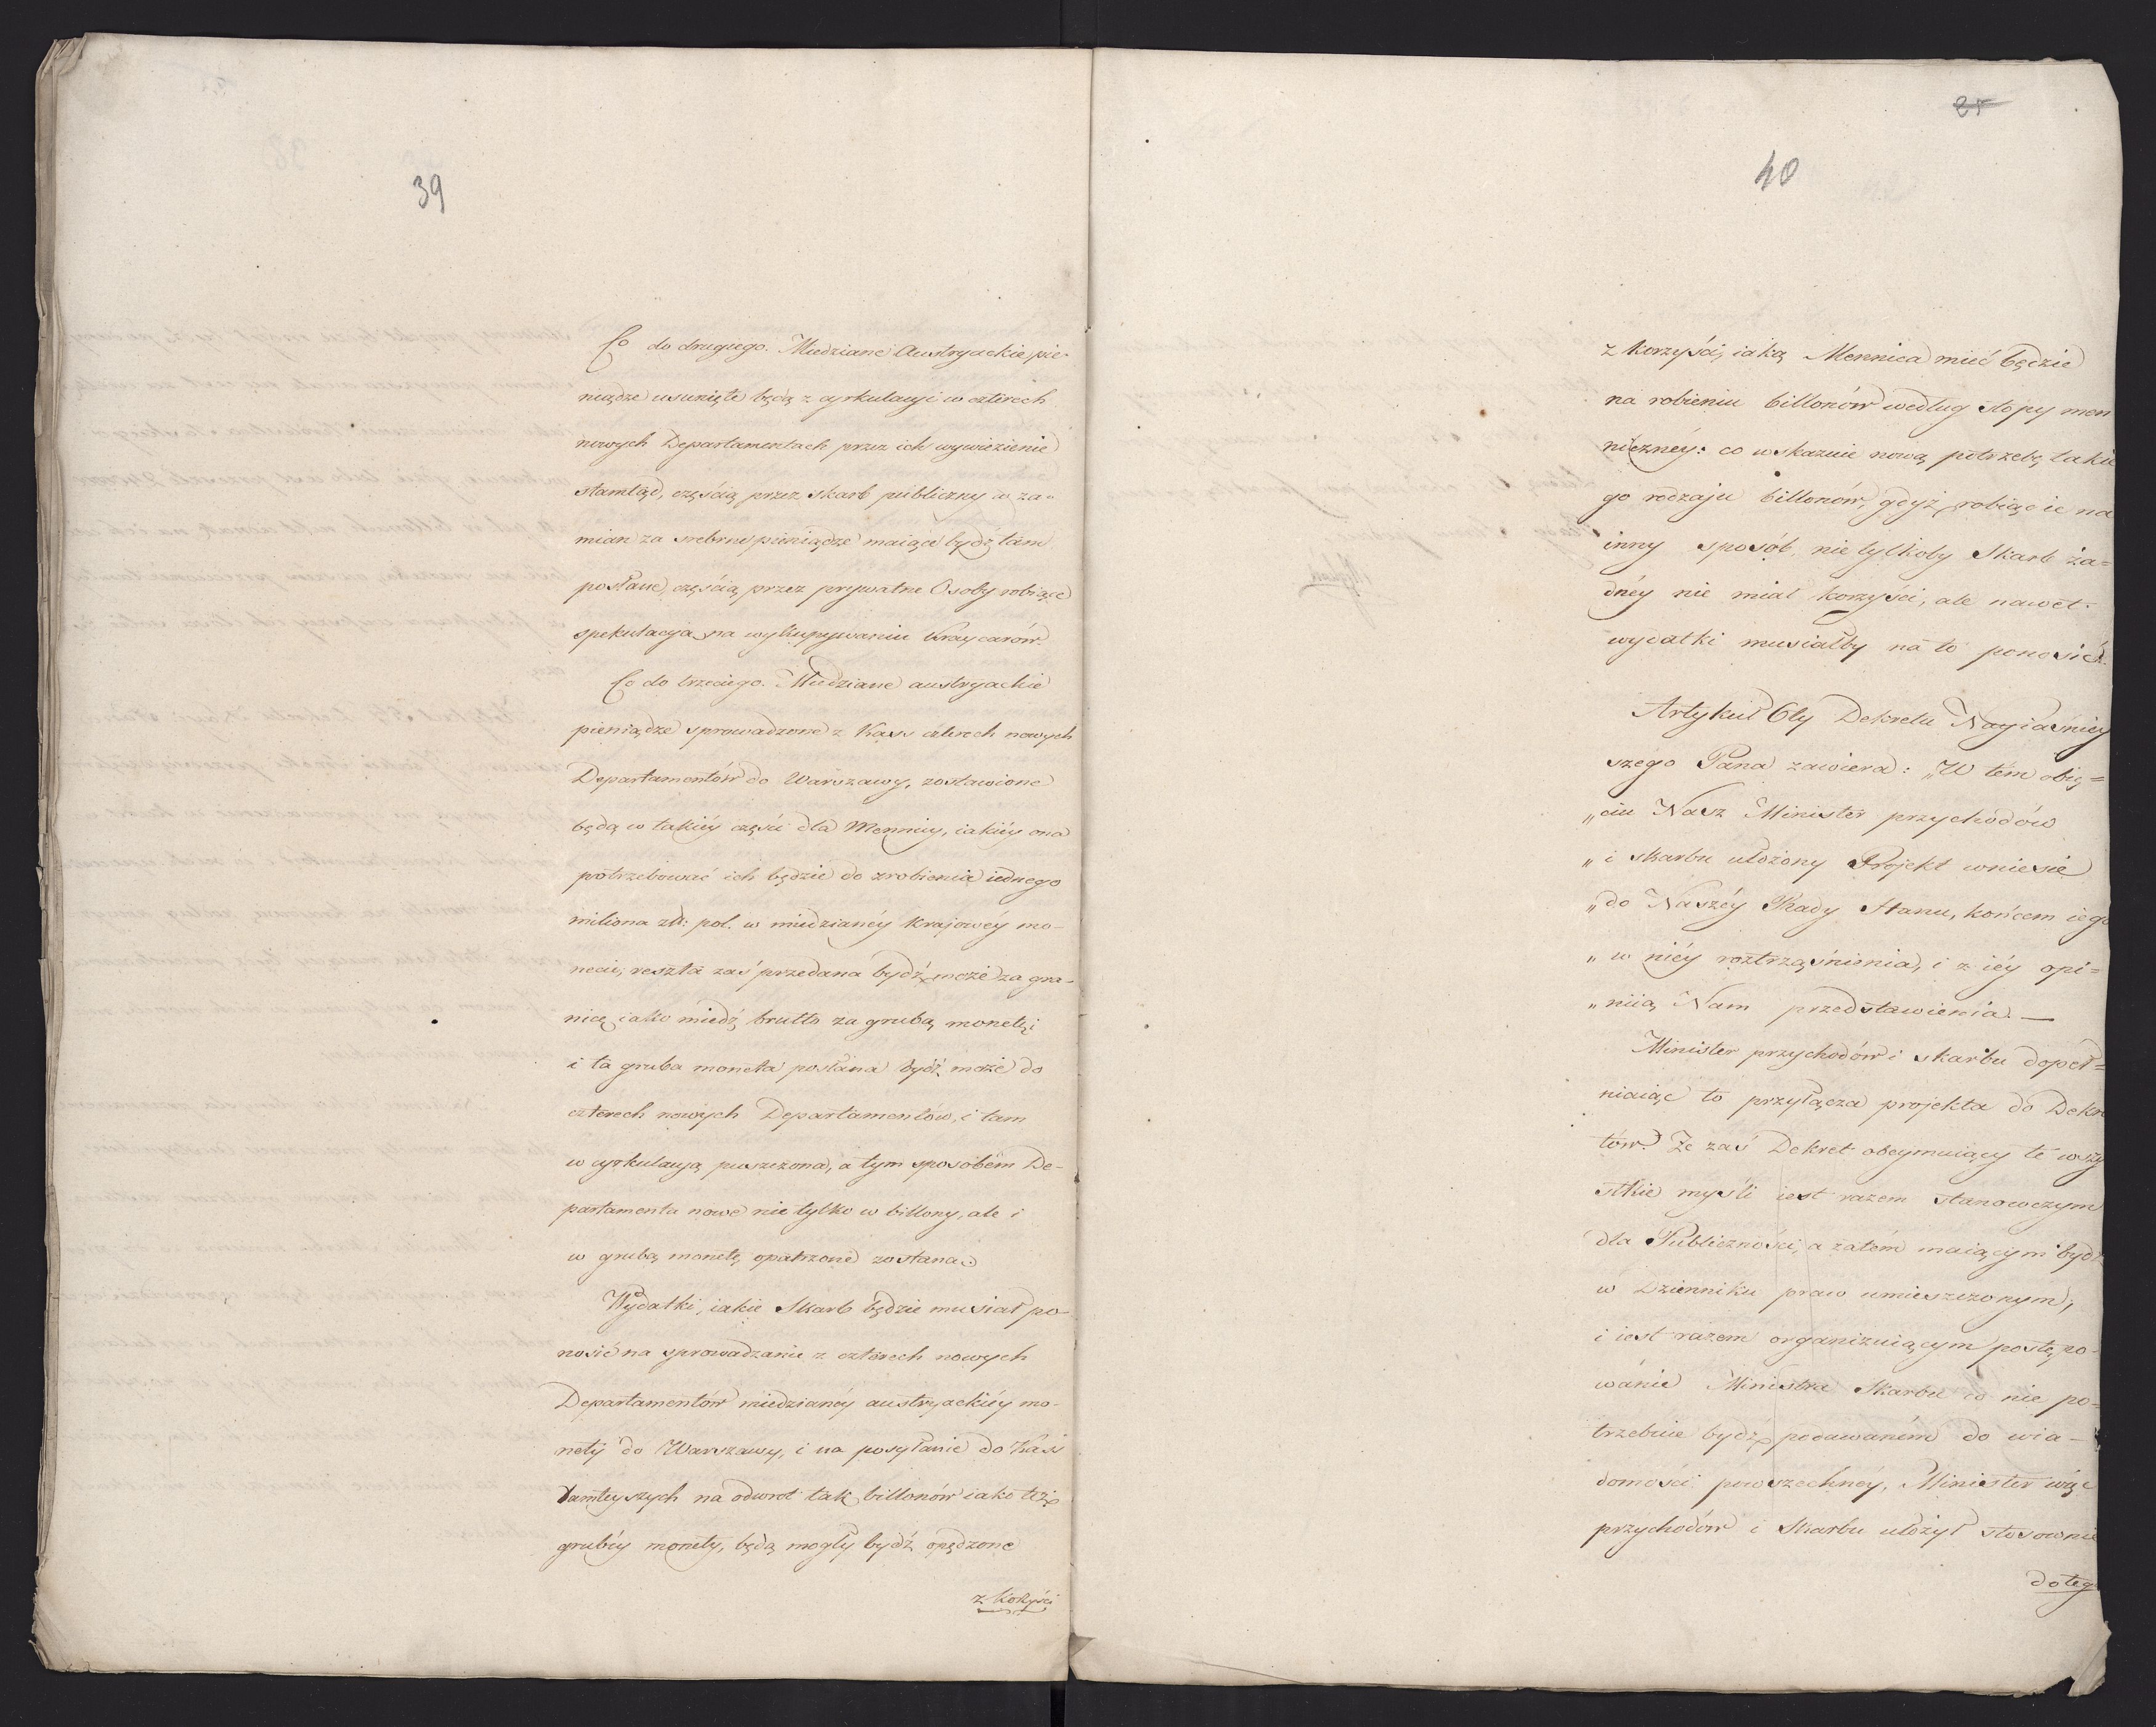 39
Co do drugiego. Miedziane Austryackie pie-
niądze usunięte będą z cyrkulacyi w czterech
nowych Departamentach przez ich wywiezienie
stamtąd, częścią przez skarb publiczny w za-
mian za srebrne pieniądze maiące bydź tam
posłane, częścią przez prywatne Osoby robiące
spekulacyą na wykupywaniu Kraycarów.
Co do trzeciego. Miedziane austryackie
pieniądze sprowadzone z Kass czterech nowych
Departamentów do Warszawy, zostawione
będą w takiéy części dla Mennicy, iakiéy ona
potrzebować ich będzie do zrobienia iednego
miliona złt: pol. w miedzianéy krajowéy mo-
necie, reszta zaś przedana bydź może za gra-
nicę iako miedź brutto za grubą monetę;
i ta gruba moneta posłana bydź może do
czterech nowych Departamentów, i tam
w cyrkulacyą puszczona, a tym sposobem De-
partamenta nowe nie tylko w billony, ale i
w grubą monetę opatrzone zostaną.
Wydatki, iakie Skarb będzie musiał po-
nosić na sprowadzanie z czterech nowych
Departamentów miedzianéy austryackiéy mo-
nety do Warszawy, i na posyłanie do Kass
tamteyszych na odwrót tak billonów iako też
grubéy monety, będą mogły bydź opędzone
z korzyści
25
40
z korzyści, iaką Mennica mieć będzie
na robieniu billonów według stopy men
niczney: co wskazuie nową potrzebę takie
go rodzaju billonów, gdyż robiąc ie na
inny sposób, nie tylkoby Skarb ża=
dnéy nie miał korzyści, ale nawet
wydatki musiałby na to ponosić.
Artykuł 6ty Dekretu Nayiaśniey
szego Pana zawiera: „W tém obię=
„ciu Nasz Minister przychodów
„i skarbu ułożony Projekt wniesie
„do Naszéy Rady Stanu, końcem iego
„w niéy roztrząśnienia, i z iéy opi=
„niią Nam przedstawienia. —
Minister przychodów i skarbu dopeł=
niaiąc to przyłącza projekta do Dekre
tów. Że zaś Dekret obeymuiący te wszy
stkie myśli iest razem stanowczym
dla Publiczności, a zatém maiącym bydź
w Dzienniku praw umieszczonym;
i iest razem organizuiącym postępo-
wanie Ministra Skarbu co nie po-
trzebuie bydź podawaném do wia-
domości powszechnéy, Minister więc
przychodów i Skarbu ułożył stosownie
do teg